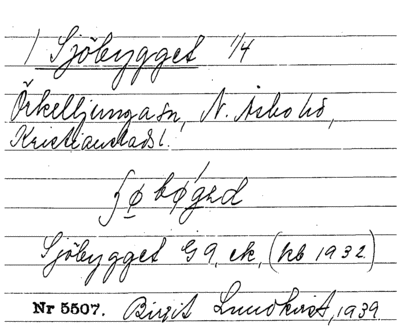 / Sjöbygget 1/4
Örkelljunga sn, N. Åsbo hd,
Kristianstads l.
Sjöbygget G9, ek, (kb 1932)
Nr 5507. Birgit Lundkvist, 1939.